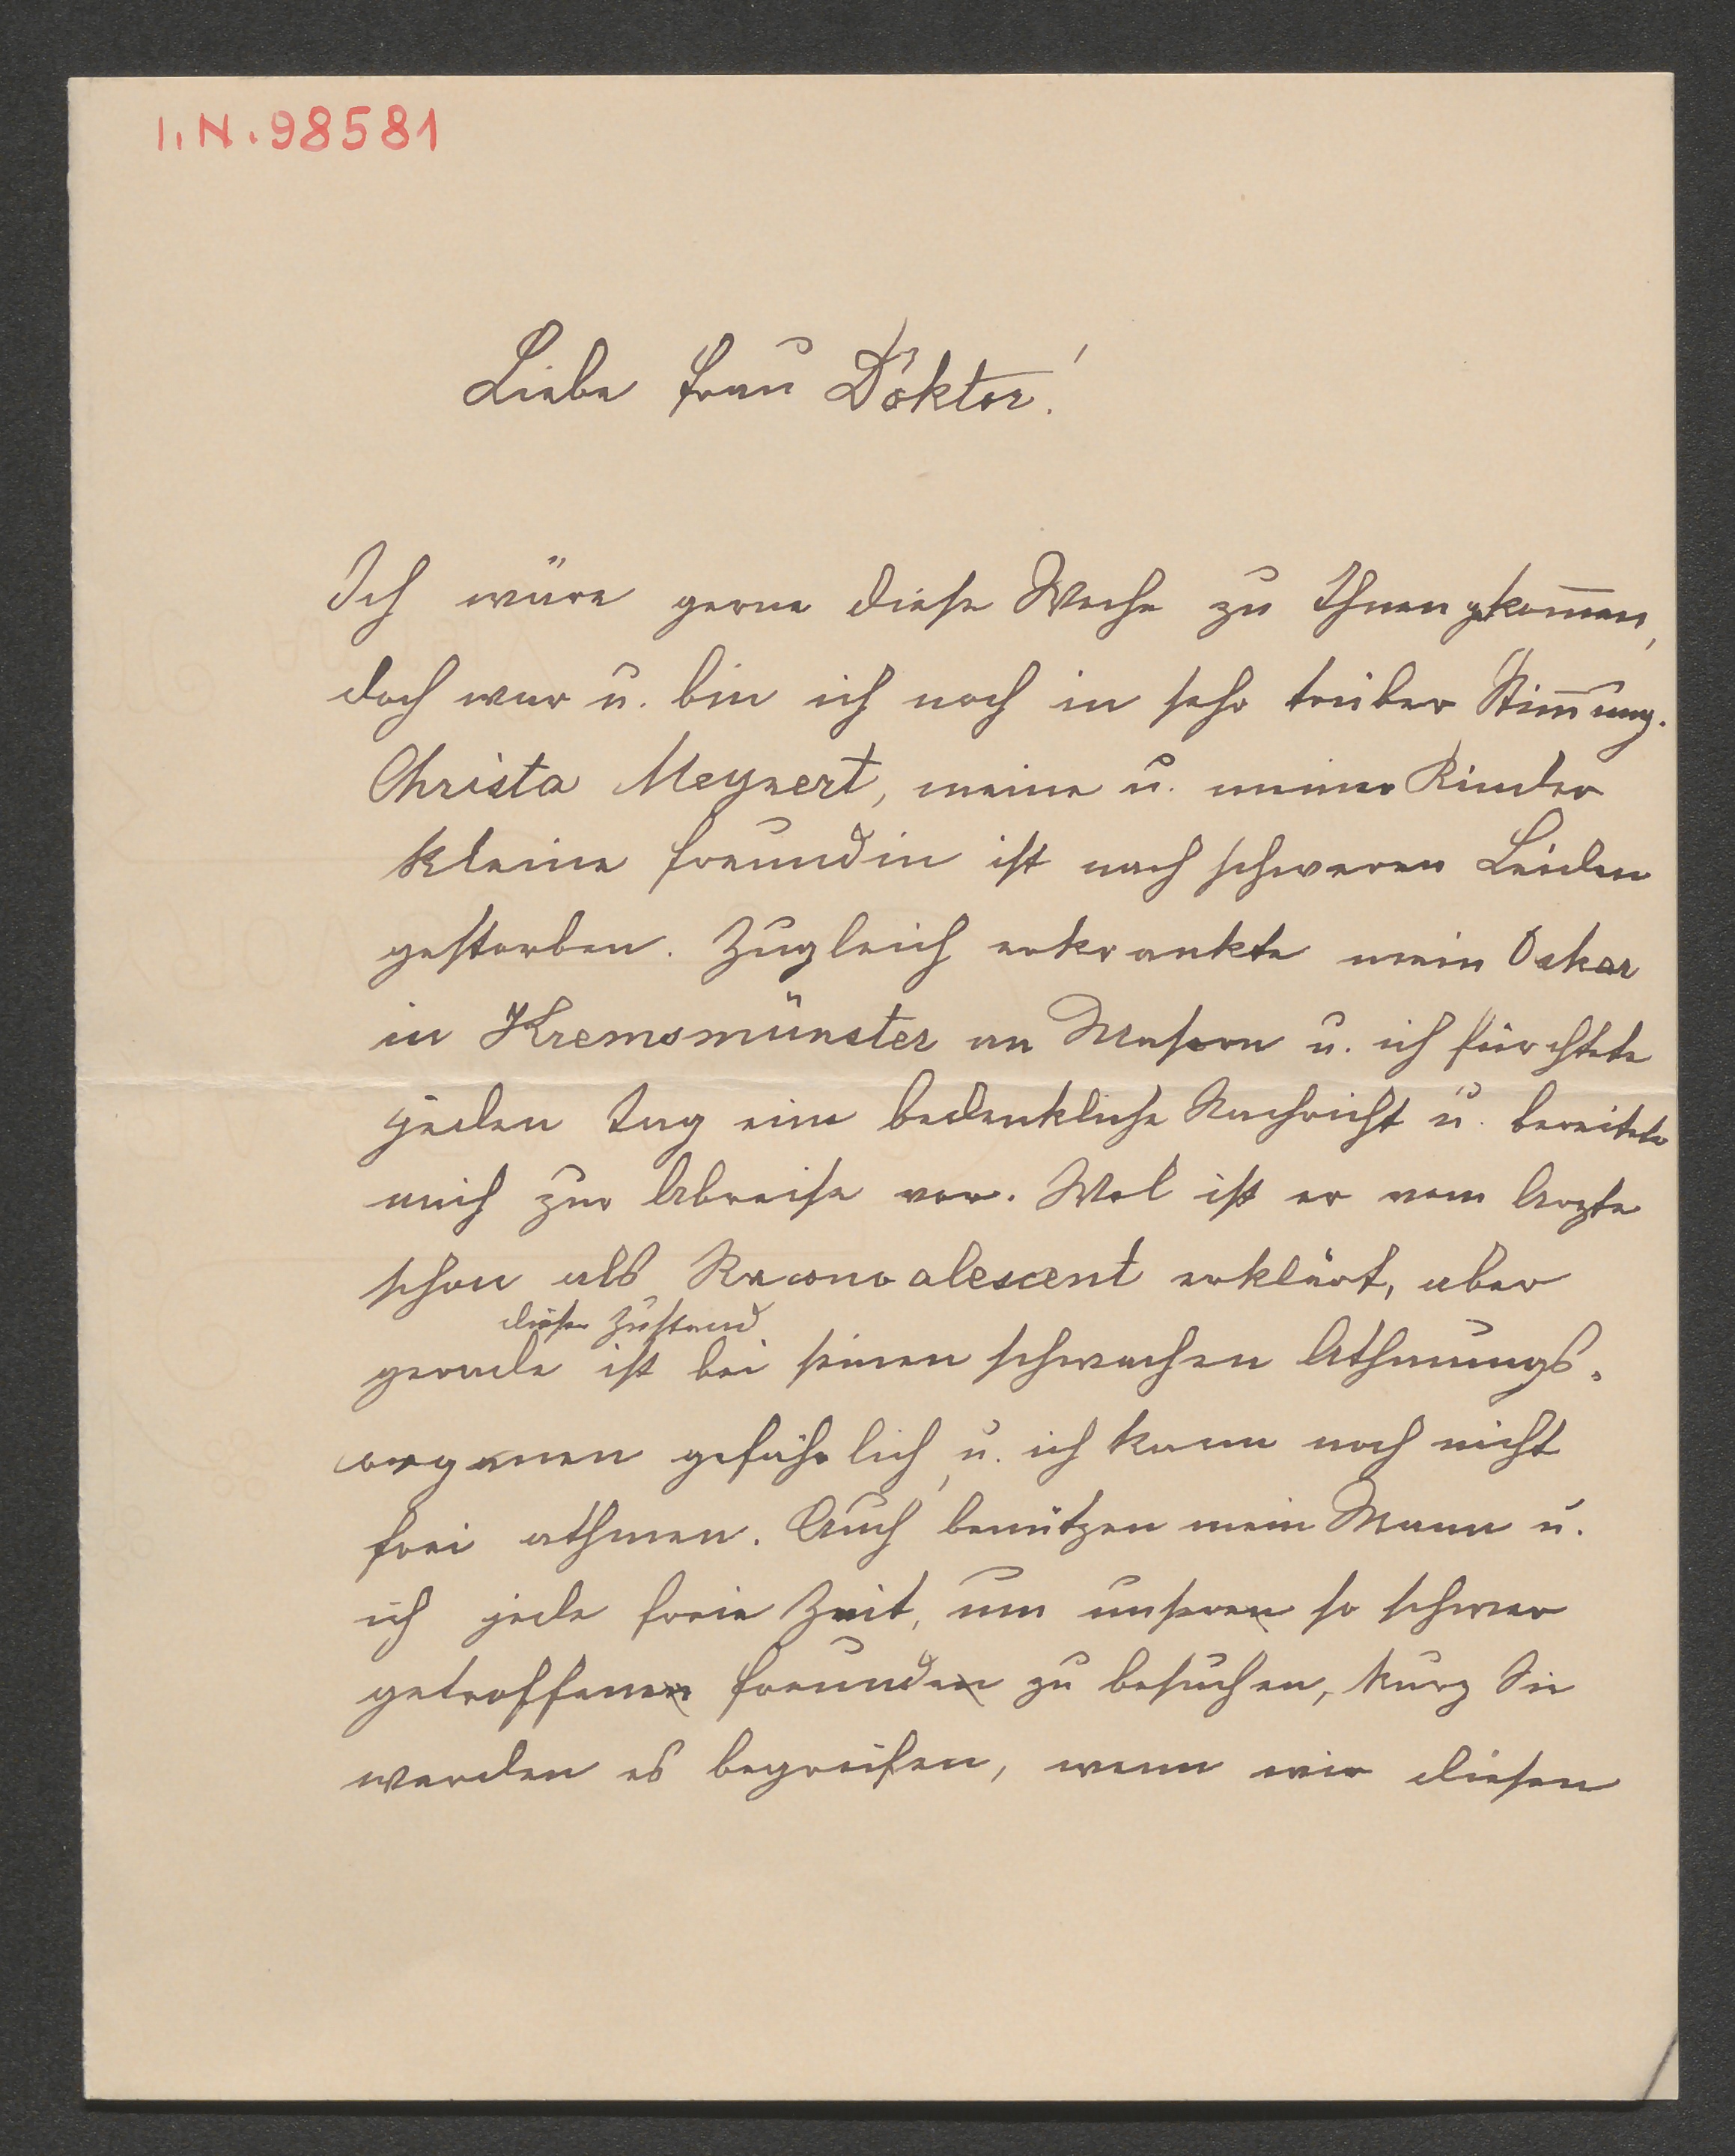 I.N.98581
Liebe Frau Doktor!
Ich wäre gerne diese Woche zu Ihnen gekom̅en,
doch war u. bin ich noch in sehr trüber Stim̅ung.
Christa Meynert, meine u. meiner Kinder
kleine Freundin ist nach schweren Leiden
gestorben. Zugleich erkrankte mein Oskar
in Kremsmünster an Masern u. ich fürchtete
jeden Tag eine bedenkliche Nachricht u. bereitete
mich zur Abreise vor. Wol ist er vom Arzte
schon als Reconvalescent erklärt, aber
dieser Zustand
gerade ist bei seinen schwachen Athmungs-
organen gefährlich, u. ich kann noch nicht
frei athmen. Auch benützen mein Mann u.
ich jede freie Zeit, um unseren so schwer
getroffenen Freunden zu besuchen, kurz Sie
werden es begreifen, wenn wir diesen